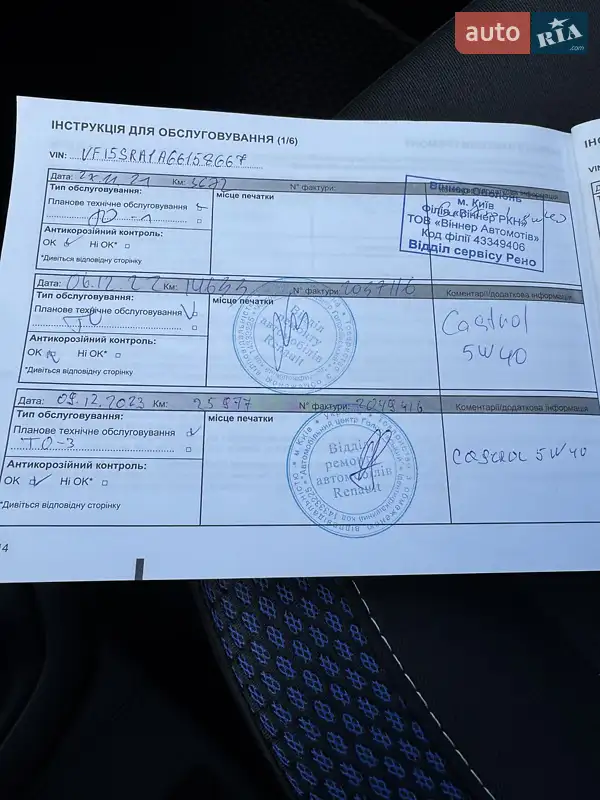 auto RIA .com
ІНСТРУКЦІЯ ДЛЯ ОБСЛУГОВУВАННЯ (1/6)
VIN: VF15SRA1A66158667
Дата: 22.11.21 Км: N° фактури:
Тип обслуговування:
Планове технічне обслуговування
ТО-1
Антикорозійний контроль:
ОК Ні ОК*
*Дивіться відповідну сторінку
місце печатки
Віннер Оболонь
м. Київ
Філія «Віннер РКН»
ТОВ «Віннер Автомотів»
Код філії 43349406
Відділ сервісу Рено
5W40
Дата: 06.12.22 Км: 14655 N° фактури: Коментарі/додаткова інформація
Планове технічне обслуговування V
ТО
Антикорозійний контроль:
ОК Ні ОК*
*Дивіться відповідну сторінку
місце печатки
автомобілів
Renault
Castrol
5W40
Дата: 09.12.2023 Км: 25977 N° фактури: 2049416 Коментарі/додаткова інформація
Тип обслуговування:
Планове технічне обслуговування
ТО-3
Антикорозійний контроль:
ОК Ні ОК*
*Дивіться відповідну сторінку
місце печатки
Відділ
ремонту
автомобілів
Renault
CASTROL 5W40
14